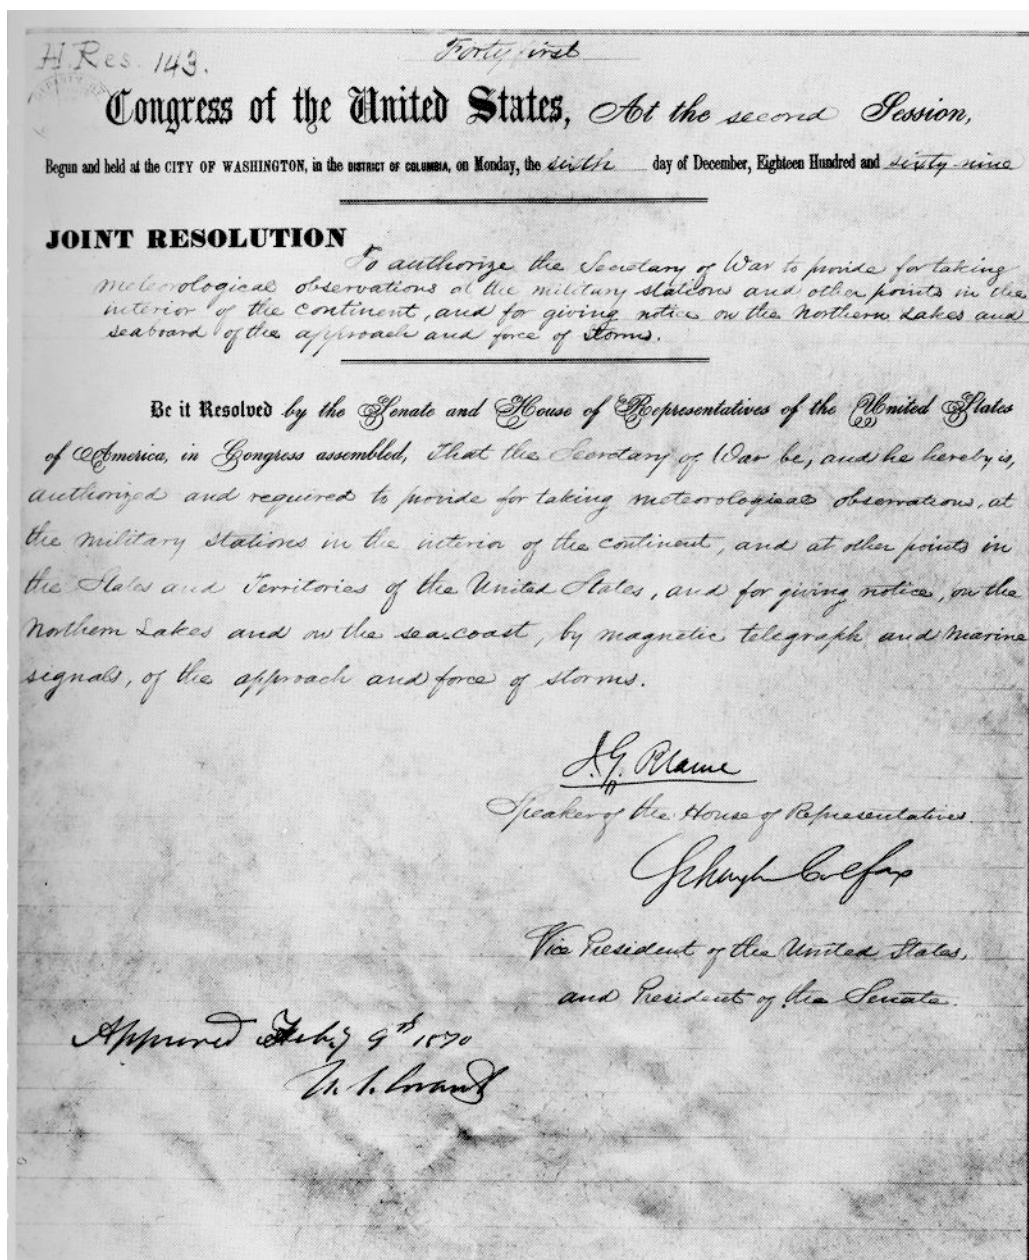 H. Res. 143.
Forty first
Congress of the United States, At the second Session,
Begun and held at the CITY OF WASHINGTON, in the DISTRICT OF COLUMBIA, on Monday, the sixth day of December, Eighteen Hundred and sixty-nine
JOINT RESOLUTION
To authorize the Secretary of War to provide for taking
meteorological observations at the military stations and other points in the
interior of the continent, and for giving notice on the Northern Lakes and
seaboard of the approach and force of storms.
Be it Resolved by the Senate and House of Representatives of the United States
of America, in Congress assembled, That the Secretary of War be, and he hereby is,
authorized and required to provide for taking meteorological observations, at
the military stations in the interior of the continent, and at other points in
the States and Territories of the United States, and for giving notice, on the
Northern Lakes and on the sea-coast, by magnetic telegraph and marine
signals, of the approach and force of storms.
J. G. Blaine
Speaker of the House of Representatives.
Schuyler Colfax
Vice President of the United States,
and President of the Senate.
Approved Feby 9th 1870
U. S. Grant